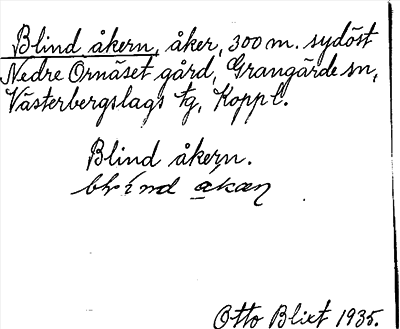 Blind åkern, åker, 300 m. sydöst
Nedre Ornäset gård, Grangärde sn,
Västerbergslags tg, Kopp l.
Blind åkern.
Otto Blixt 1935.